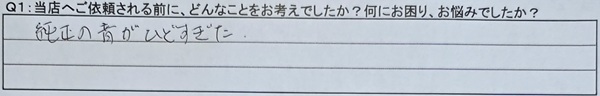 Q1:当店へご依頼される前に、どんなことをお考えでしたか？何にお困り、お悩みでしたか？
純正の音がひどすぎた.